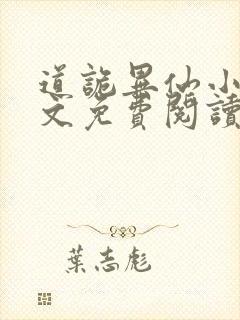 道詭異仙小
文免費閱讀
葉志彪